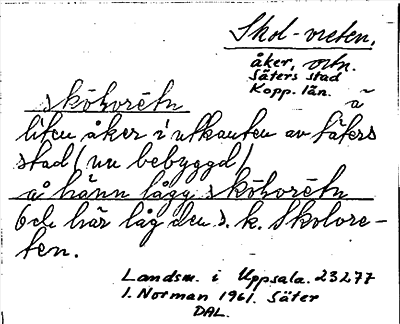 Skol-vreten,
åker, ortn.
Säters stad
Kopp. län.
skôḷvrètn
liten åker i utkanten av Säters
stad (nu bebyggd)
å hänn lågg skôḷvrètn
Och här låg den s. k. Skolvre-
ten.
Landsm. i Uppsala. 23277
I. Norman 1961. Säter
DAL.